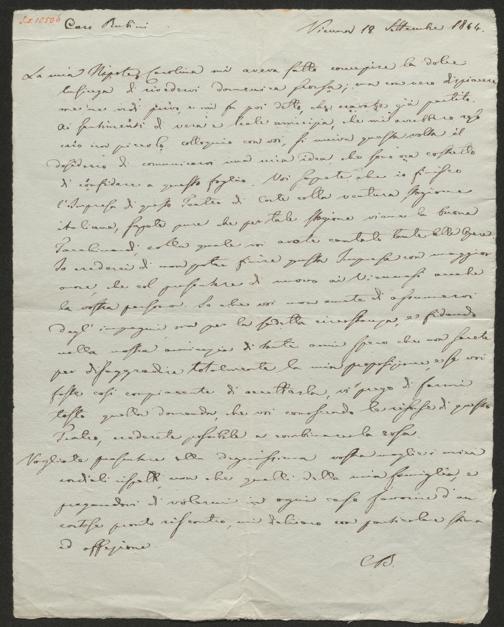 Caro Rubini
Vienna 18 Settembre 1844.
La mia Nipote Carolina mi aveva fatto concepire la dolce
lusinga di rivedervi domenica scorsa; ma con vero dispiacere
mio non vi vidi, e mi fu poi detto, che eravate già partito.
Ai sentimenti di vera e leale amicizia, che mi avrebbero reso
caro un piccolo colloquio con voi, si univa questa volta il
desiderio di comunicarvi una mia idea che sono ora costretto
di confidare a questo foglio. Voi sapete che io finisco
l'Impresa di questo Teatro di Corte colla ventura stagione
italiana, sapete pure che per tale stagione viene la buona
colla quale voi avete cantato tante belle
Io crederei di non poter finire questa Impresa con maggior
onore, che col presentare di nuovo ai Viennesi anche
la vostra persona. So che voi non amate di assumervi
degl'impegni ma per la suddetta circostanza, e fidando
nella vostra amicizia di tanti anni spero che non sarete
per disaggradire totalmente la mia proposizione, e se voi
foste così compiacente di accettarla, vi prego di farmi
tosto quella domanda, che voi conoscendo le risorse di questo
Teatro, crederete possibile a combinare la cosa.
Vogliate presentare alla degnissima vostra moglie i miei
cordiali rispetti non che quelli della mia famiglia, e
pregandovi di volermi in ogni caso favorire d'un
cortese pronto riscontro, mi dichiaro con particolare stima
ed affezione